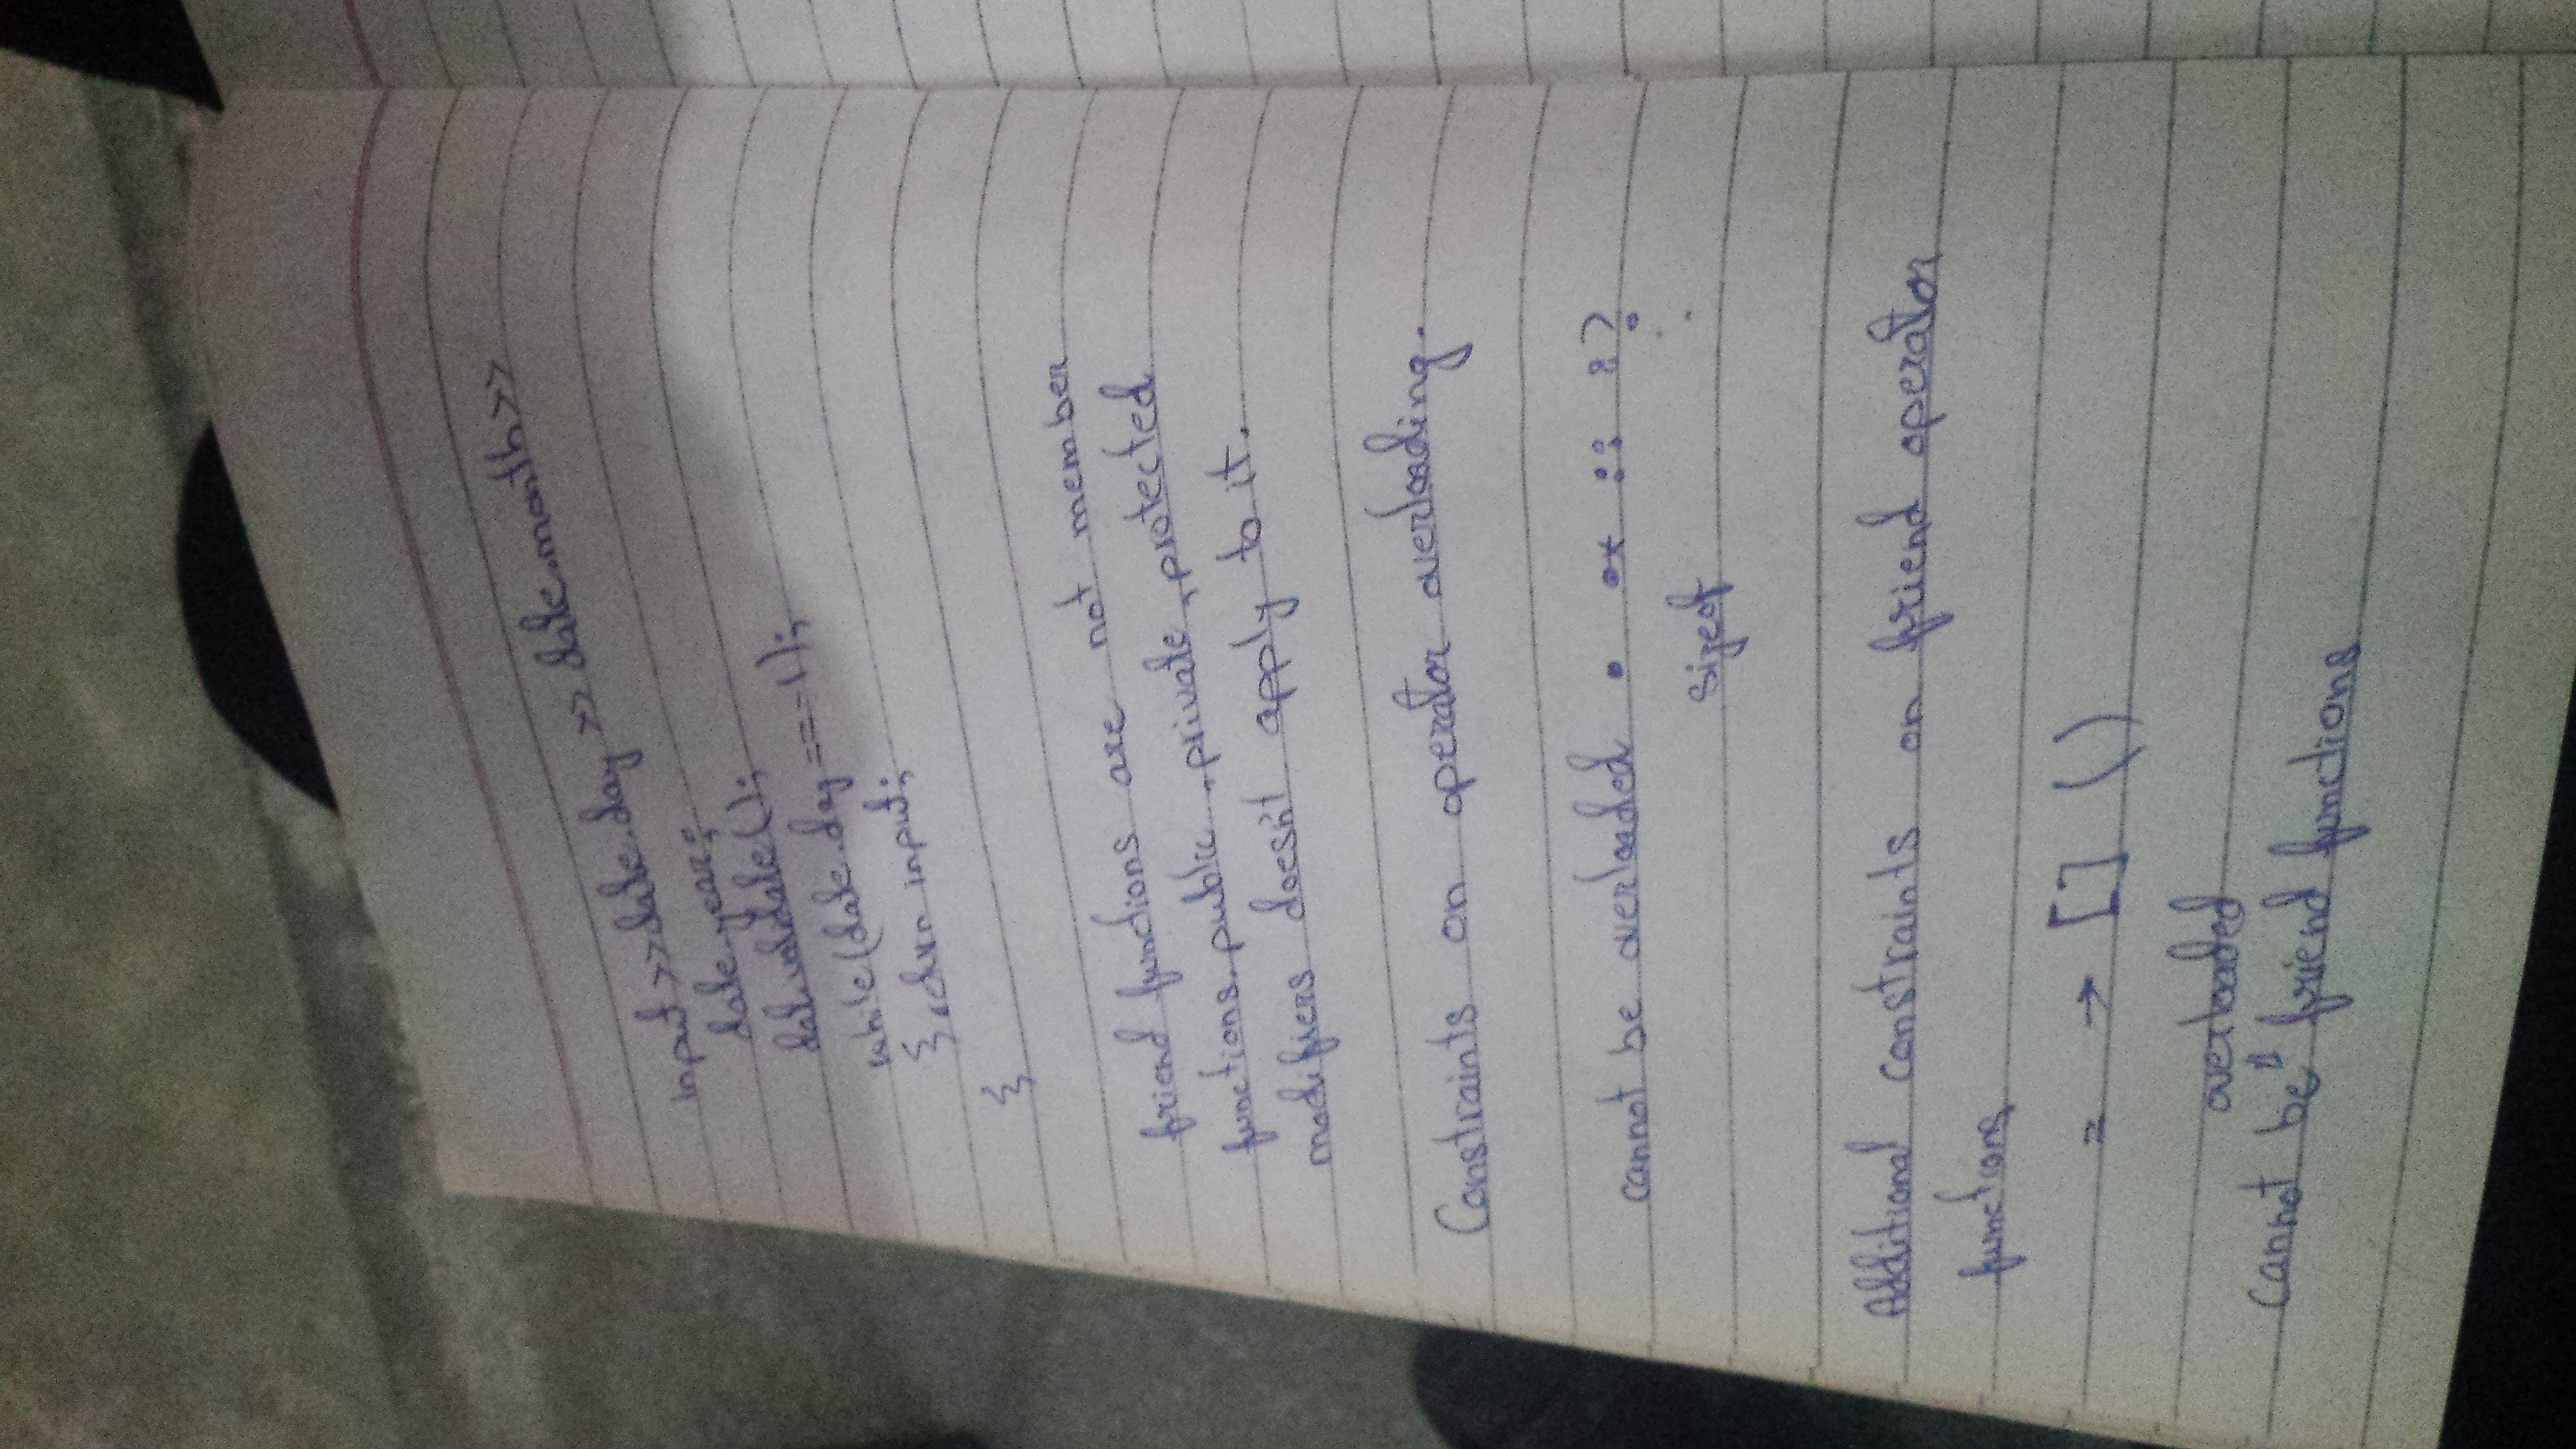 input >> date.day >> date.month >>
date.year;
dat.validate();
while(date.day == -1);
} return input;
}
friend functions are not member
functions. public, private, protected
modifiers doesn't apply to it.
Constraints on operator overloading.
cannot be overloaded . .* :: :?
sizeof
Additional constraints on friend operator
functions
= → [] ()
overloaded
cannot be friend functions